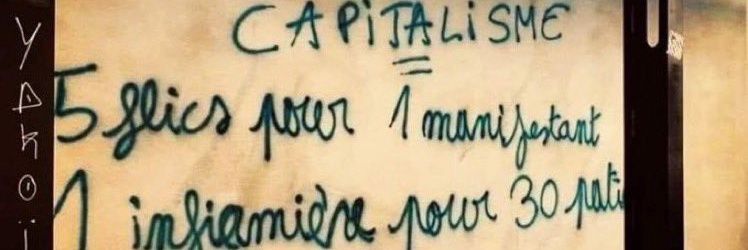 CAPiTALiSME
5 flics pour 1 manifestant
1 infirmière pour 30 pati